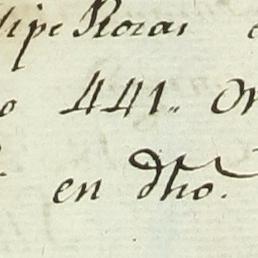 lipe Rozas
o 441.. On
en dho.